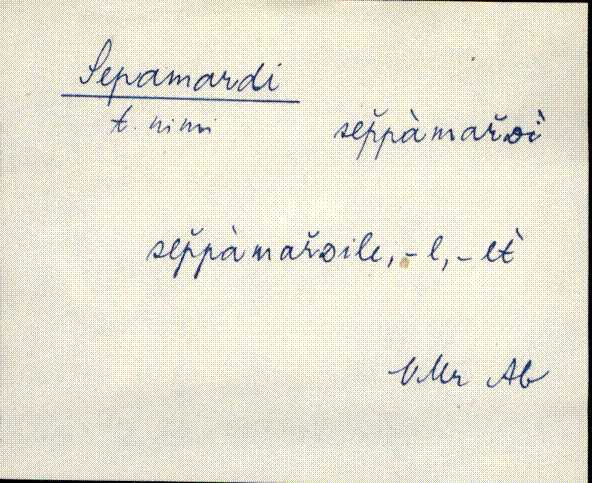 Sepamardi
t. nimi
sep̆pàmar̆ᴅì
sep̆pàmar̆ᴅile, -l, -lt̀
VMr Ab